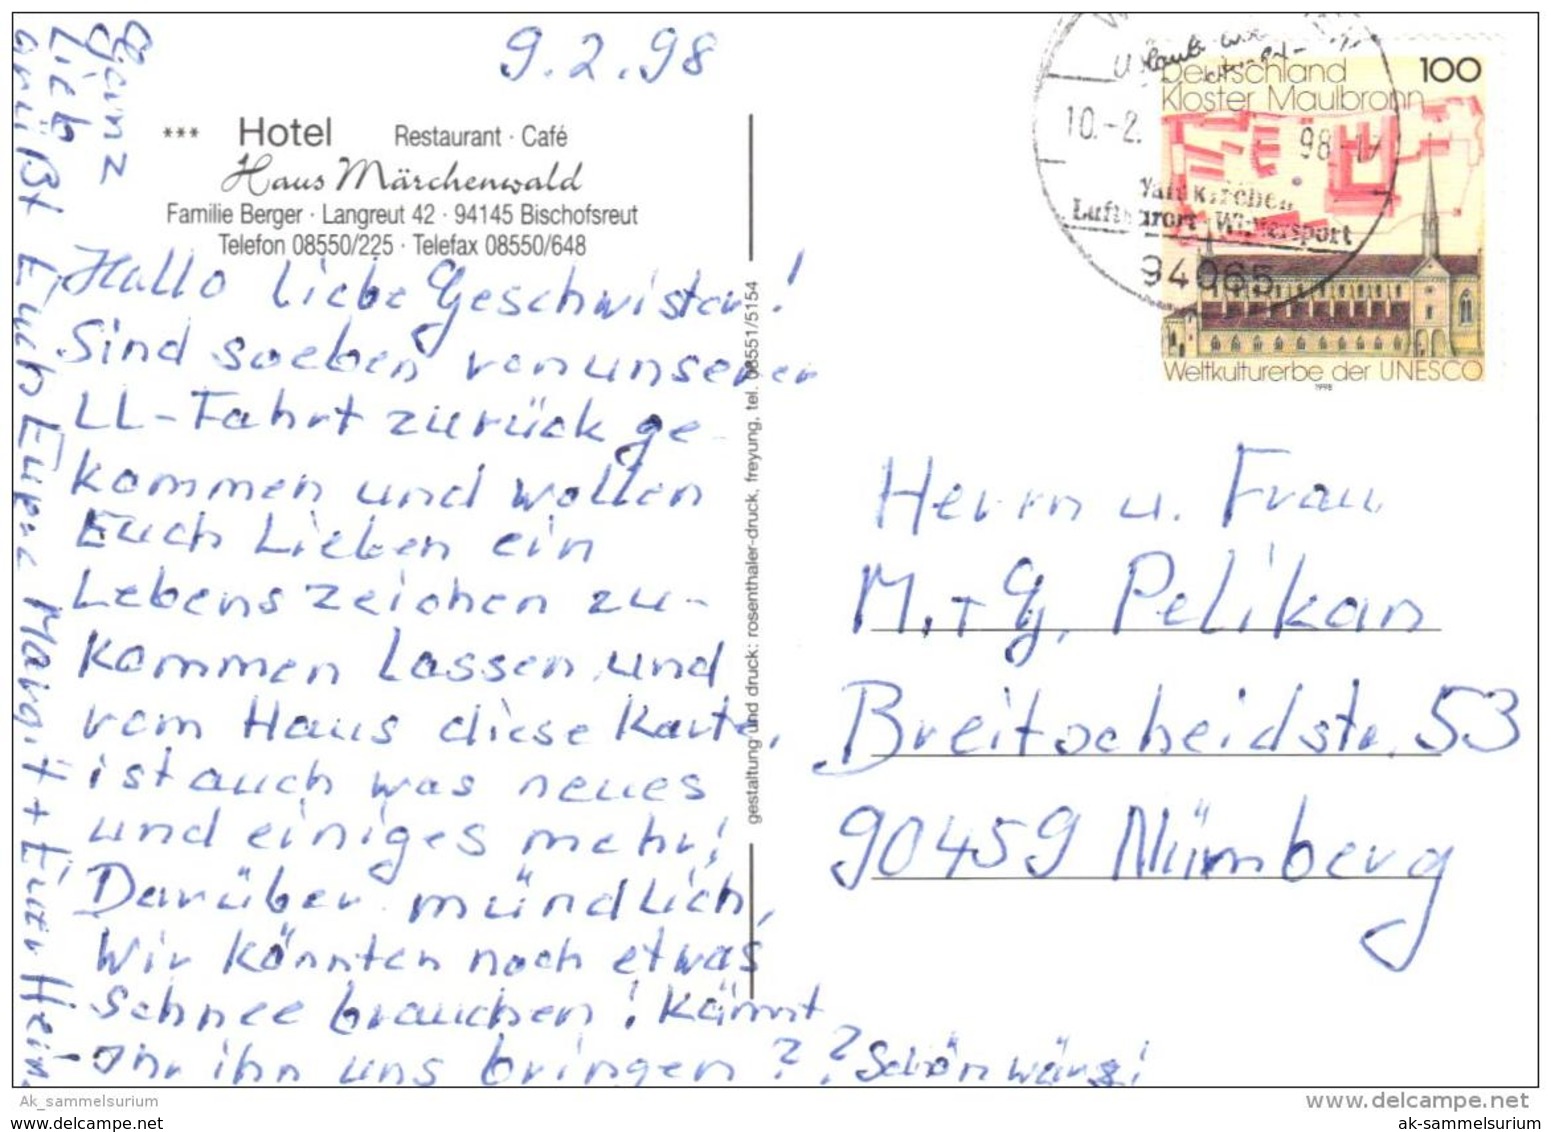 9.2.98
*** Hotel Restaurant · Café
Haus Märchenwald
Familie Berger · Langreut 42 · 94145 Bischofsreut
Telefon 08550/225 · Telefax 08550/648
Hallo liebe Geschwister!
Sind soeben von unserer
LL-Fahrt zurück ge-
kommen und wollen
Euch Lieben ein
Lebenszeichen zu-
kommen lassen und
vom Haus diese Karte,
ist auch was neues
und einiges mehr!
Darüber mündlich,
Wir könnten noch etwas
Schnee brauchen! Könnt
Ihr ihn uns bringen?? Schön wärs!
Ganz
Lieb
grüßt Euch Eure Margit + Euer Hein.
gestaltung und druck: rosenthaler-druck, freyung, tel. 08551/5154
Deutschland 100
Kloster Maulbronn
Weltkulturerbe der UNESCO
1998
10.-2. 98-17
Waldkirchen
Luftkurort Wintersport
94065
Herrn u. Frau
M. + G. Pelikan
Breitscheidstr. 53
90459 Nürnberg
Ak_sammelsurium
www.delcampe.net
www.delcampe.net
ak-sammelsurium